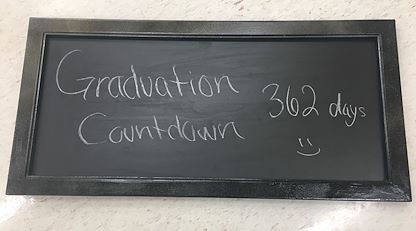 Graduation
Countdown
362 days
:)